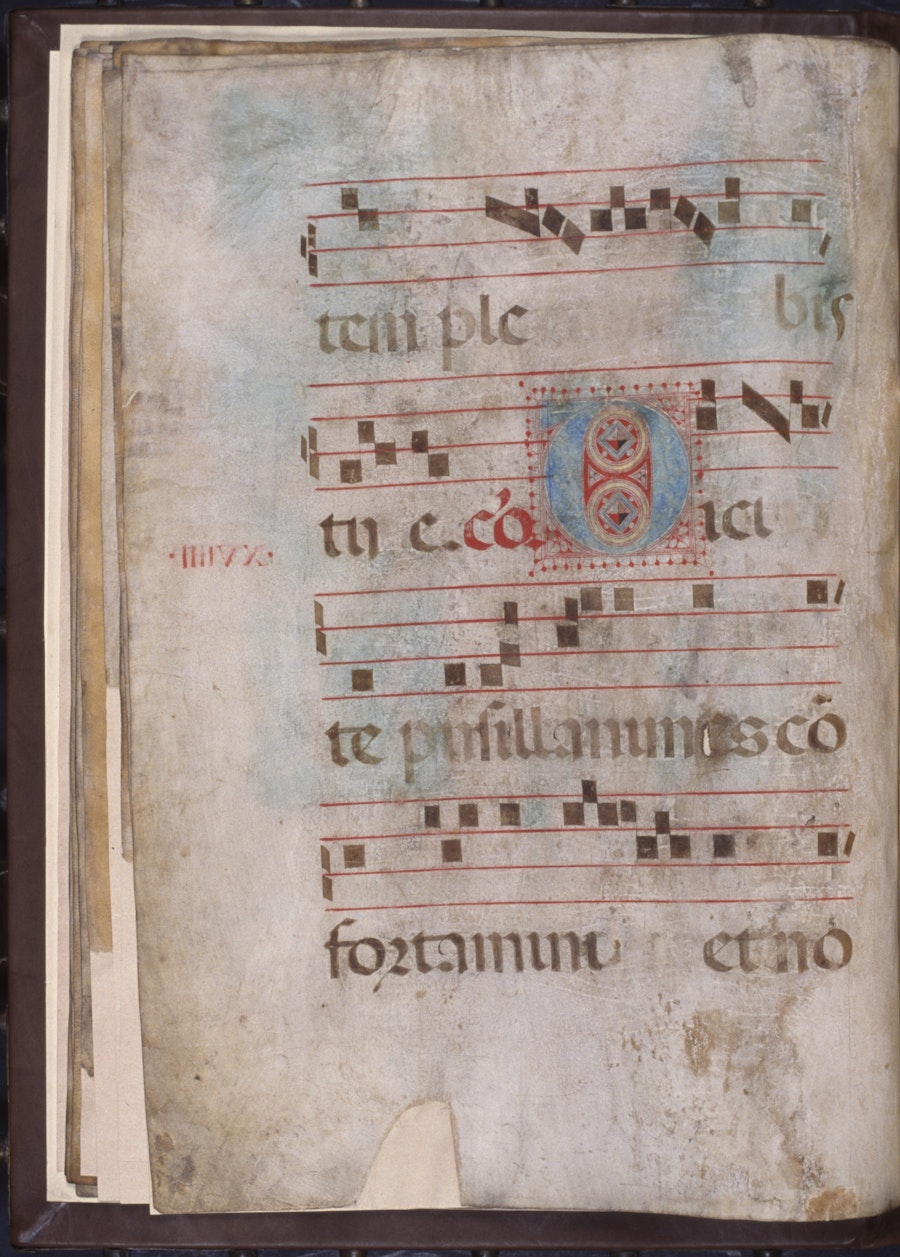 tem ple bis
tu e. cō. Dici
te pusillanimes cō
fortamini et nō